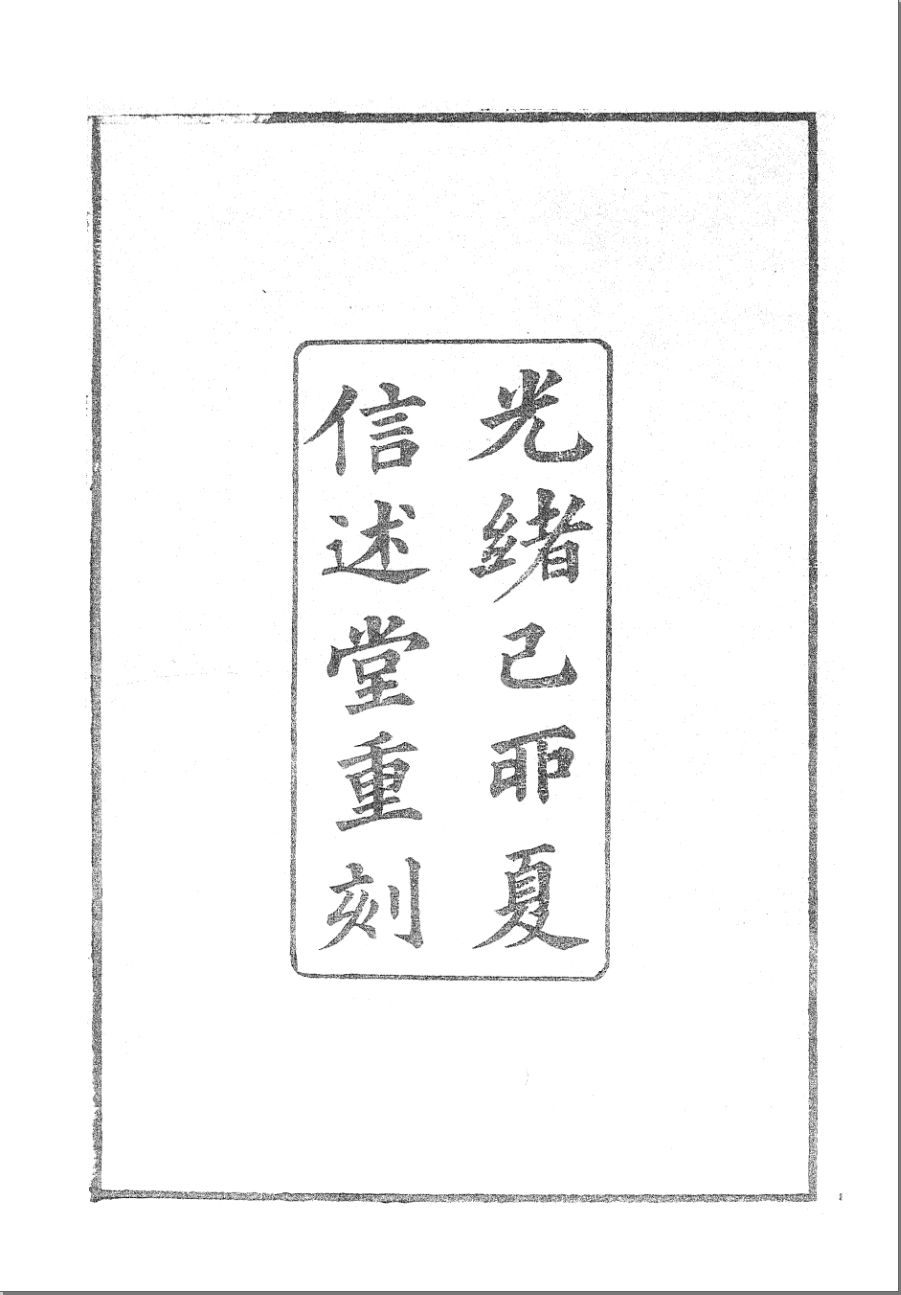 光緒己丣夏
信述堂重刻